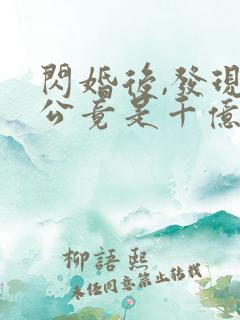 閃婚後,發現
公竟是千億
柳語熙
未經同意禁止转载